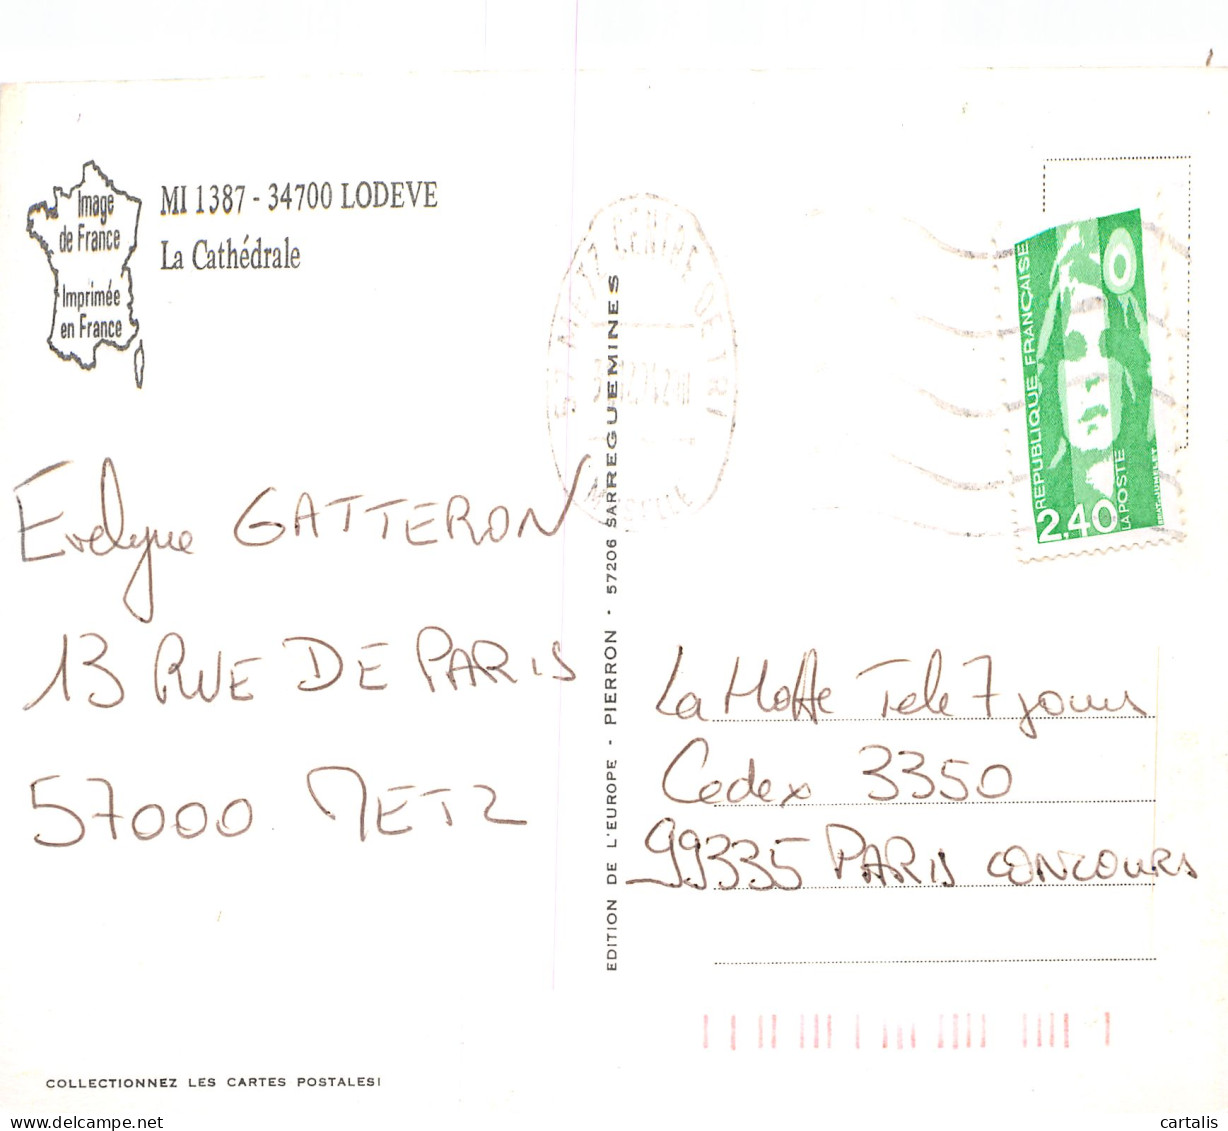 Image
de France
Imprimée
en France
MI 1387 - 34700 LODEVE
La Cathédrale
METZ CENTRE DE TRI
MOSELLE
REPUBLIQUE FRANÇAISE
2,40
LA POSTE
Evelyne GATTERON
13 RUE DE PARIS
57000 METZ
EDITION DE L'EUROPE - PIERRON - 57206 SARREGUEMINES
La Hotte Tele 7 jours
Cedex 3350
99335 PARIS CONCOURS
COLLECTIONNEZ LES CARTES POSTALES!
cartalis.com